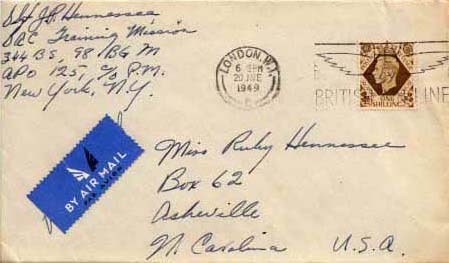 Sgt J.P. Hennessee
SAC Training Mission
344 BS, 98 BG M
APO 125T, c/o P.M.
New York, N.Y.
LONDON. W.1.
20 JNE
1949
BRITISH LINE
ONE SHILLING
BY AIR MAIL
PAR AVION
Miss Ruby Hennessee
Box 62
Asheville
N. Carolina U.S.A.